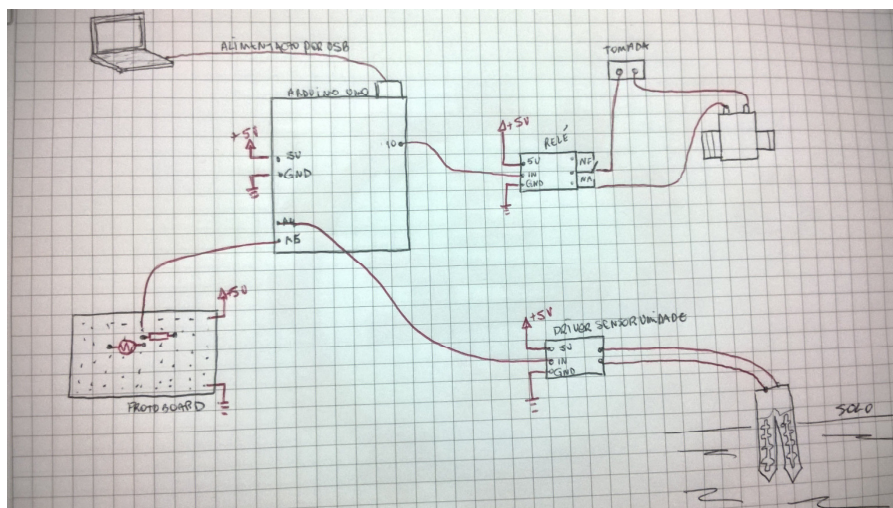 ALIMENTAÇÃO POR USB
ARDUINO UNO
TOMADA
+5V
5V
GND
10
A4
A5
+5V
RELÉ
5V
IN
GND
NF
NA
+5V
PROTOBOARD
+5V
DRIVER SENSOR UMIDADE
5V
IN
GND
SOLO